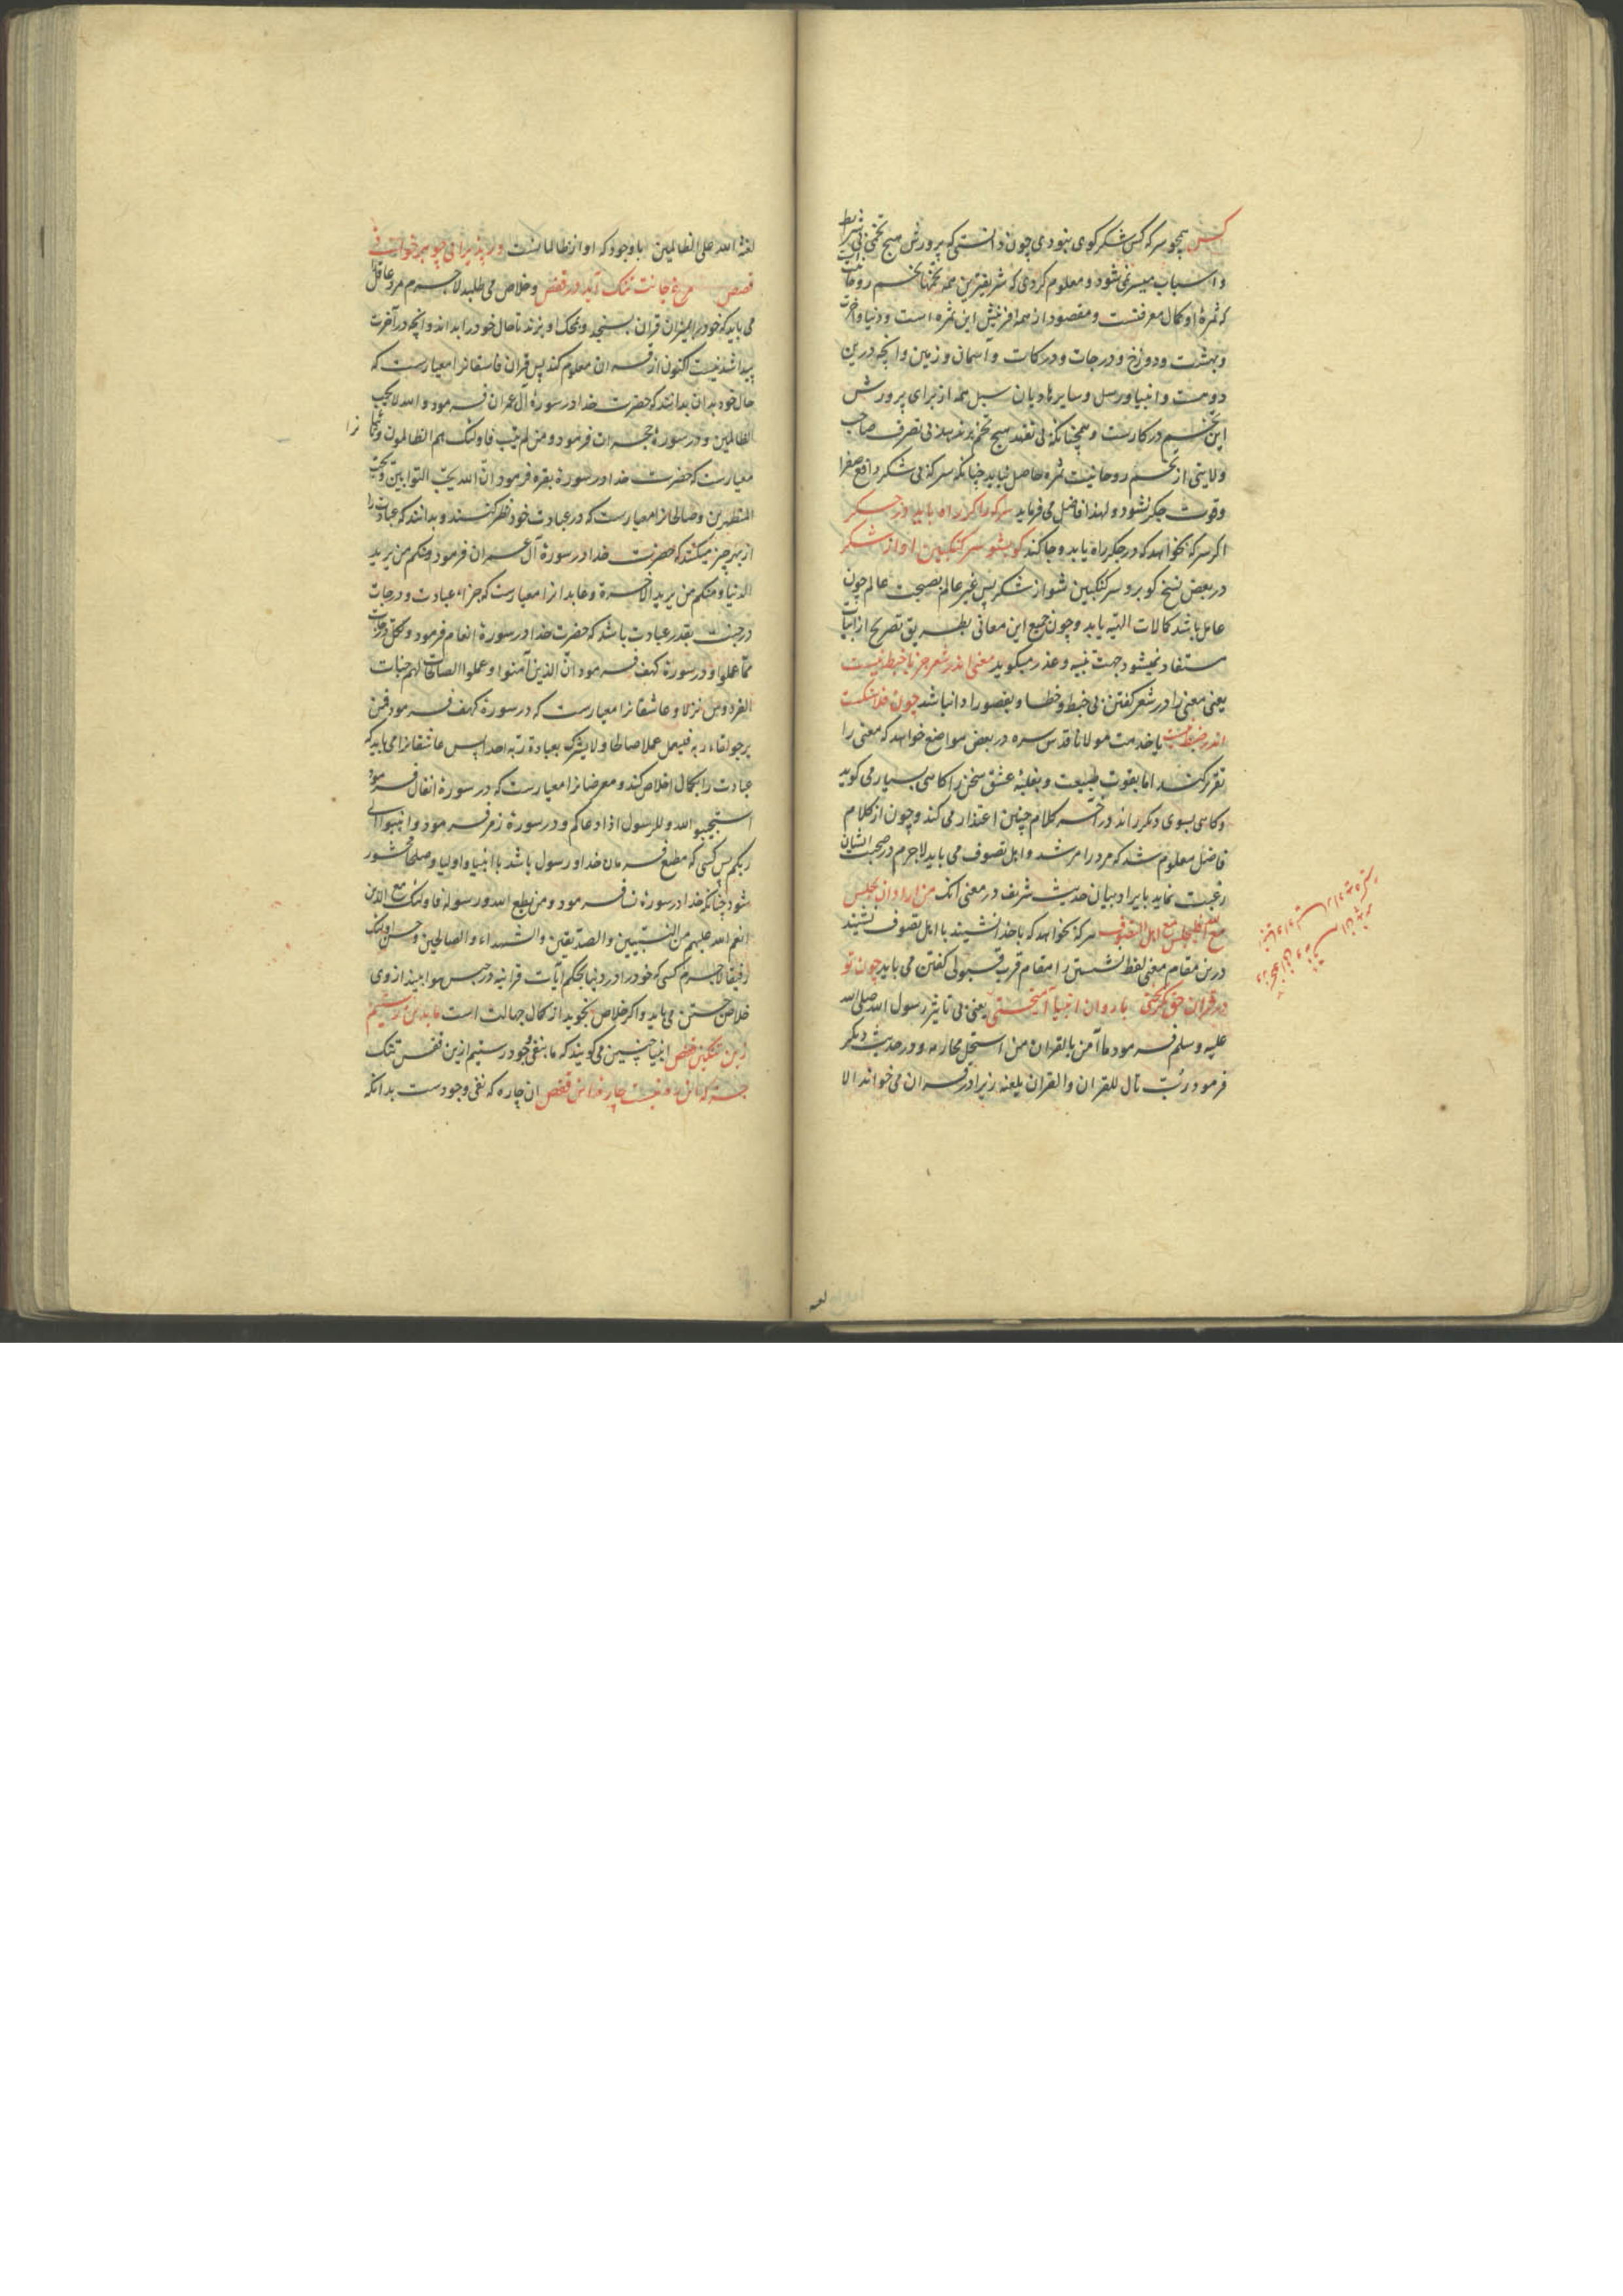 کس همچو سرکه کس شکر کوی بنودی چون دانستی که پرورش هیچ تخمی بی شرایط
و اسباب میسر نمی شود و معلوم کردی که شریفترین همه تخمها تخم روحانیت
که ثمرهٔ او کمال معرفتست و مقصود از همه افرینش این ثمره است و دنیا و آخرت
و بهشت و دوزخ و درجات و درکات و آسمان و زمین و انچه درین
دوست و انبیا و رسل و سایر هادیان سبل همه از برای پرورش
این تخم در کارست و همچنانکه بی تعهد هیچ تخم بر ندهد بی تصرف صاحب
ولایتی از تخم روحانیت ثمره حاصل نیاید چنانکه سرکه بی شکر دافع صفرا
وقوت جکر نشود و لهذا فاضل می فرماید سرکه را کر راه باید در جکر
اکر سرکه بخواهد که در جکر راه یابد و جا کند کو بشو سرکنکبین او از شکر
در بعض نسخ کو برو سرکنکبین شو از شکر پس غیر عالم بصحبت عالم چون
عامل باشد کمالات الهیه یابد و چون جمیع این معانی بطریق تصریح از ابیات
مستفاد نمیشود جهت تنبیه و عذر میکوید معنی اندر شعر جز با خبط نیست
یعنی معنی را در شعر کفتن بی خبط و خطا و بقصور ادا نباشد چون فلاسنکست
اندر ضبط نیست یا خدمت مولانا قدس سره در بعض مواضع خواهد که معنی را
تقریر کند اما بقوت طبیعت و بغلبهٔ عشق سخن را کاهی بسیار می کوید
و کاهی بسوی دیکر راند در آخر کلام چنین اعتذار می کند و چون از کلام
فاضل معلوم شد که مرد را مرشد و اهل تصوف می باید لاجرم در صحبت ایشان
رغبت نماید بایراد بیان حدیث شریف در معنی انک من اراد ان یجلس
مع الله فلیجلس مع اهل التصوف هر که بخواهد که با خدا نشیند با اهل تصوف نشیند
درین مقام معنی لفظ نشستن را مقام قرب قبولی کفتن می باید چون تو
در قران حق بکریختی با روان انبیا آمیختی یعنی بی تاثیر رسول الله صلی الله
علیه و سلم فرمود ما آمن بالقران من استحل محارمه و در حدیث دیکر
فرمود رب تال للقران و القران یلعنه زیرا در قران می خواند الا
لعنة الله علی الظالمین با وجود که او از ظالمانست ور پذیرایی چو بر خوانی
قصص مرغ جانت تنک آید در قفص و خلاص می طلبد لاجرم مرد عاقل
می باید که خود را بمیزان قران بسنجد و بمحک او بزند تا حال خود را بداند و انچه در آخرت
پیدا شدنیست اکنون از قران معلوم کند پس قران فاسقانرا معیارست که
حال خود بدان بدانند که حضرت خدا در سورهٔ آل عمران فرمود و الله لا یحب
الظالمین و در سورهٔ حجرات فرمود و من لم یتب فاولئک هم الظالمون
معیارست که حضرت خدا در سورهٔ بقره فرمود ان الله یحب التوابین و یحب
المتطهرین و صالحانرا معیارست که در عبادت خود نظر کنند و بدانند که عبادت را
از بهر چیز میکنند که حضرت خدا در سورهٔ آل عمران فرمود و منکم من یرید
الدنیا و منکم من یرید الآخرة و عابدانرا معیارست که جزاء عبادت و درجات
در جنت بقدر عبادت باشد که حضرت خدا در سورهٔ انعام فرمود و لکل درجات
مما عملوا و در سورهٔ کهف فرمود ان الذین آمنوا و عملوا الصالحات لهم جنات
الفردوس نزلا و عاشقانرا معیارست که در سورهٔ کهف فرمود فمن
یرجو لقاء ربه فلیعمل عملا صالحا و لا یشرک بعبادة ربه احدا پس عاشقانرا می باید که
عبادت را بکمال اخلاص کند و معرضانرا معیارست که در سورهٔ انفال فرمود
استجیبوا لله و للرسول اذا دعاکم و در سورهٔ زمر فرمود و انیبوا الی
ربکم پس کسی که مطیع فرمان خدا و رسول باشد با انبیا و اولیا و صلحا محشور
شود چنانکه خدا در سورهٔ نسا فرمود و من یطع الله و رسوله فاولئک مع الذین
انعم الله علیهم من النبیین و الصدیقین و الشهداء و الصالحین و حسن اولئک
رفیقا لاجرم کسی که خود را در دنیا بحکم آیات قرانیه در حبس هوا بیند از وی
خلاص جستن می باید و اکر خلاص نجوید از کمال جهالت است ما بدین رستیم
زین تنکین قفص انبیا چنین می کویند که ما بنفی وجود رستیم ازین قفس تنک
جز که این ره نیست چاره این قفص ان چاره که نفی وجودست بدانکه
لعنه